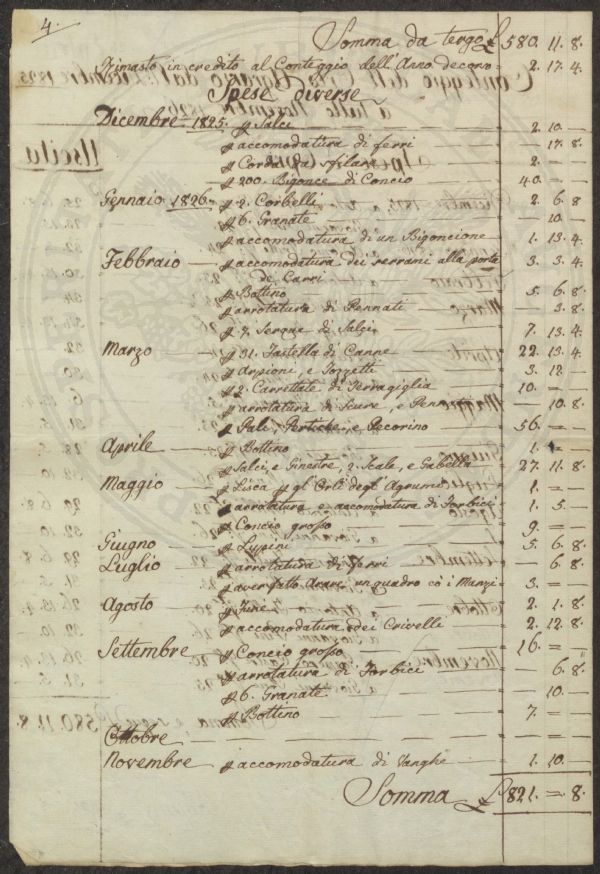 4.
Somma da tergo £ 580. 11. 8.
Rimasto in credito al Conteggio dell'Anno decorso = 2. 17. 4.
Spese diverse
Dicembre 1825. p Salci 2. 10. —
p accomodatura di ferri — 17. 8.
p Corda da 2. = —
p 200. Bigonce di Concio 40. = —
Gennaio 1826. p 2. Corbelli 2. 6. 8
p 6. Granate — 10. —
p accomodatura di un Bigoncione 1. 13. 4.
Febbraio p accomodatura dei serrami alla porta 3. 3. 4.
de Carri
p Bottino 5. 6. 8.
p arrotatura di Pennati — 3. 8.
p 7. Serque di Salci 7. 13. 4.
Marzo p 31. Tastella di Canne 22. 13. 4.
p Arpioni, e 3. 12. —
p 2. Carrettate di Terragiglia 10. = —
p arrotatura di Scure, e Pennato — 10. 8.
p Pali, Pertiche, e Pecorino 56. = —
Aprile p Bottino 1. = —
p Salci, e Ginestre, 2. Scale, e Gabella 27. 11. 8.
Maggio p Lisca p gl'Orli degl'Agrumi 1. = —
p arrotatura, e accomodatura di Forbici 1. 5. —
p Concio grosso 9. = —
Giugno p Lupini 5. 6. 8.
Luglio p arrotatura di ferri — 6. 8.
p aver fatto Arare un quadro co' i Manzi 3. = —
Agosto p Fune 2. 1. 8.
p accomodatura dei Crivelli 2. 12. 8.
Settembre p Concio grosso 16. = —
p arrotatura di Forbici 6. 8.
p 6. Granate — 10. —
p Bottino 7. = —
Ottobre
Novembre p accomodatura di Vanghe 1. 10. —
Somma £ 821. = 8.